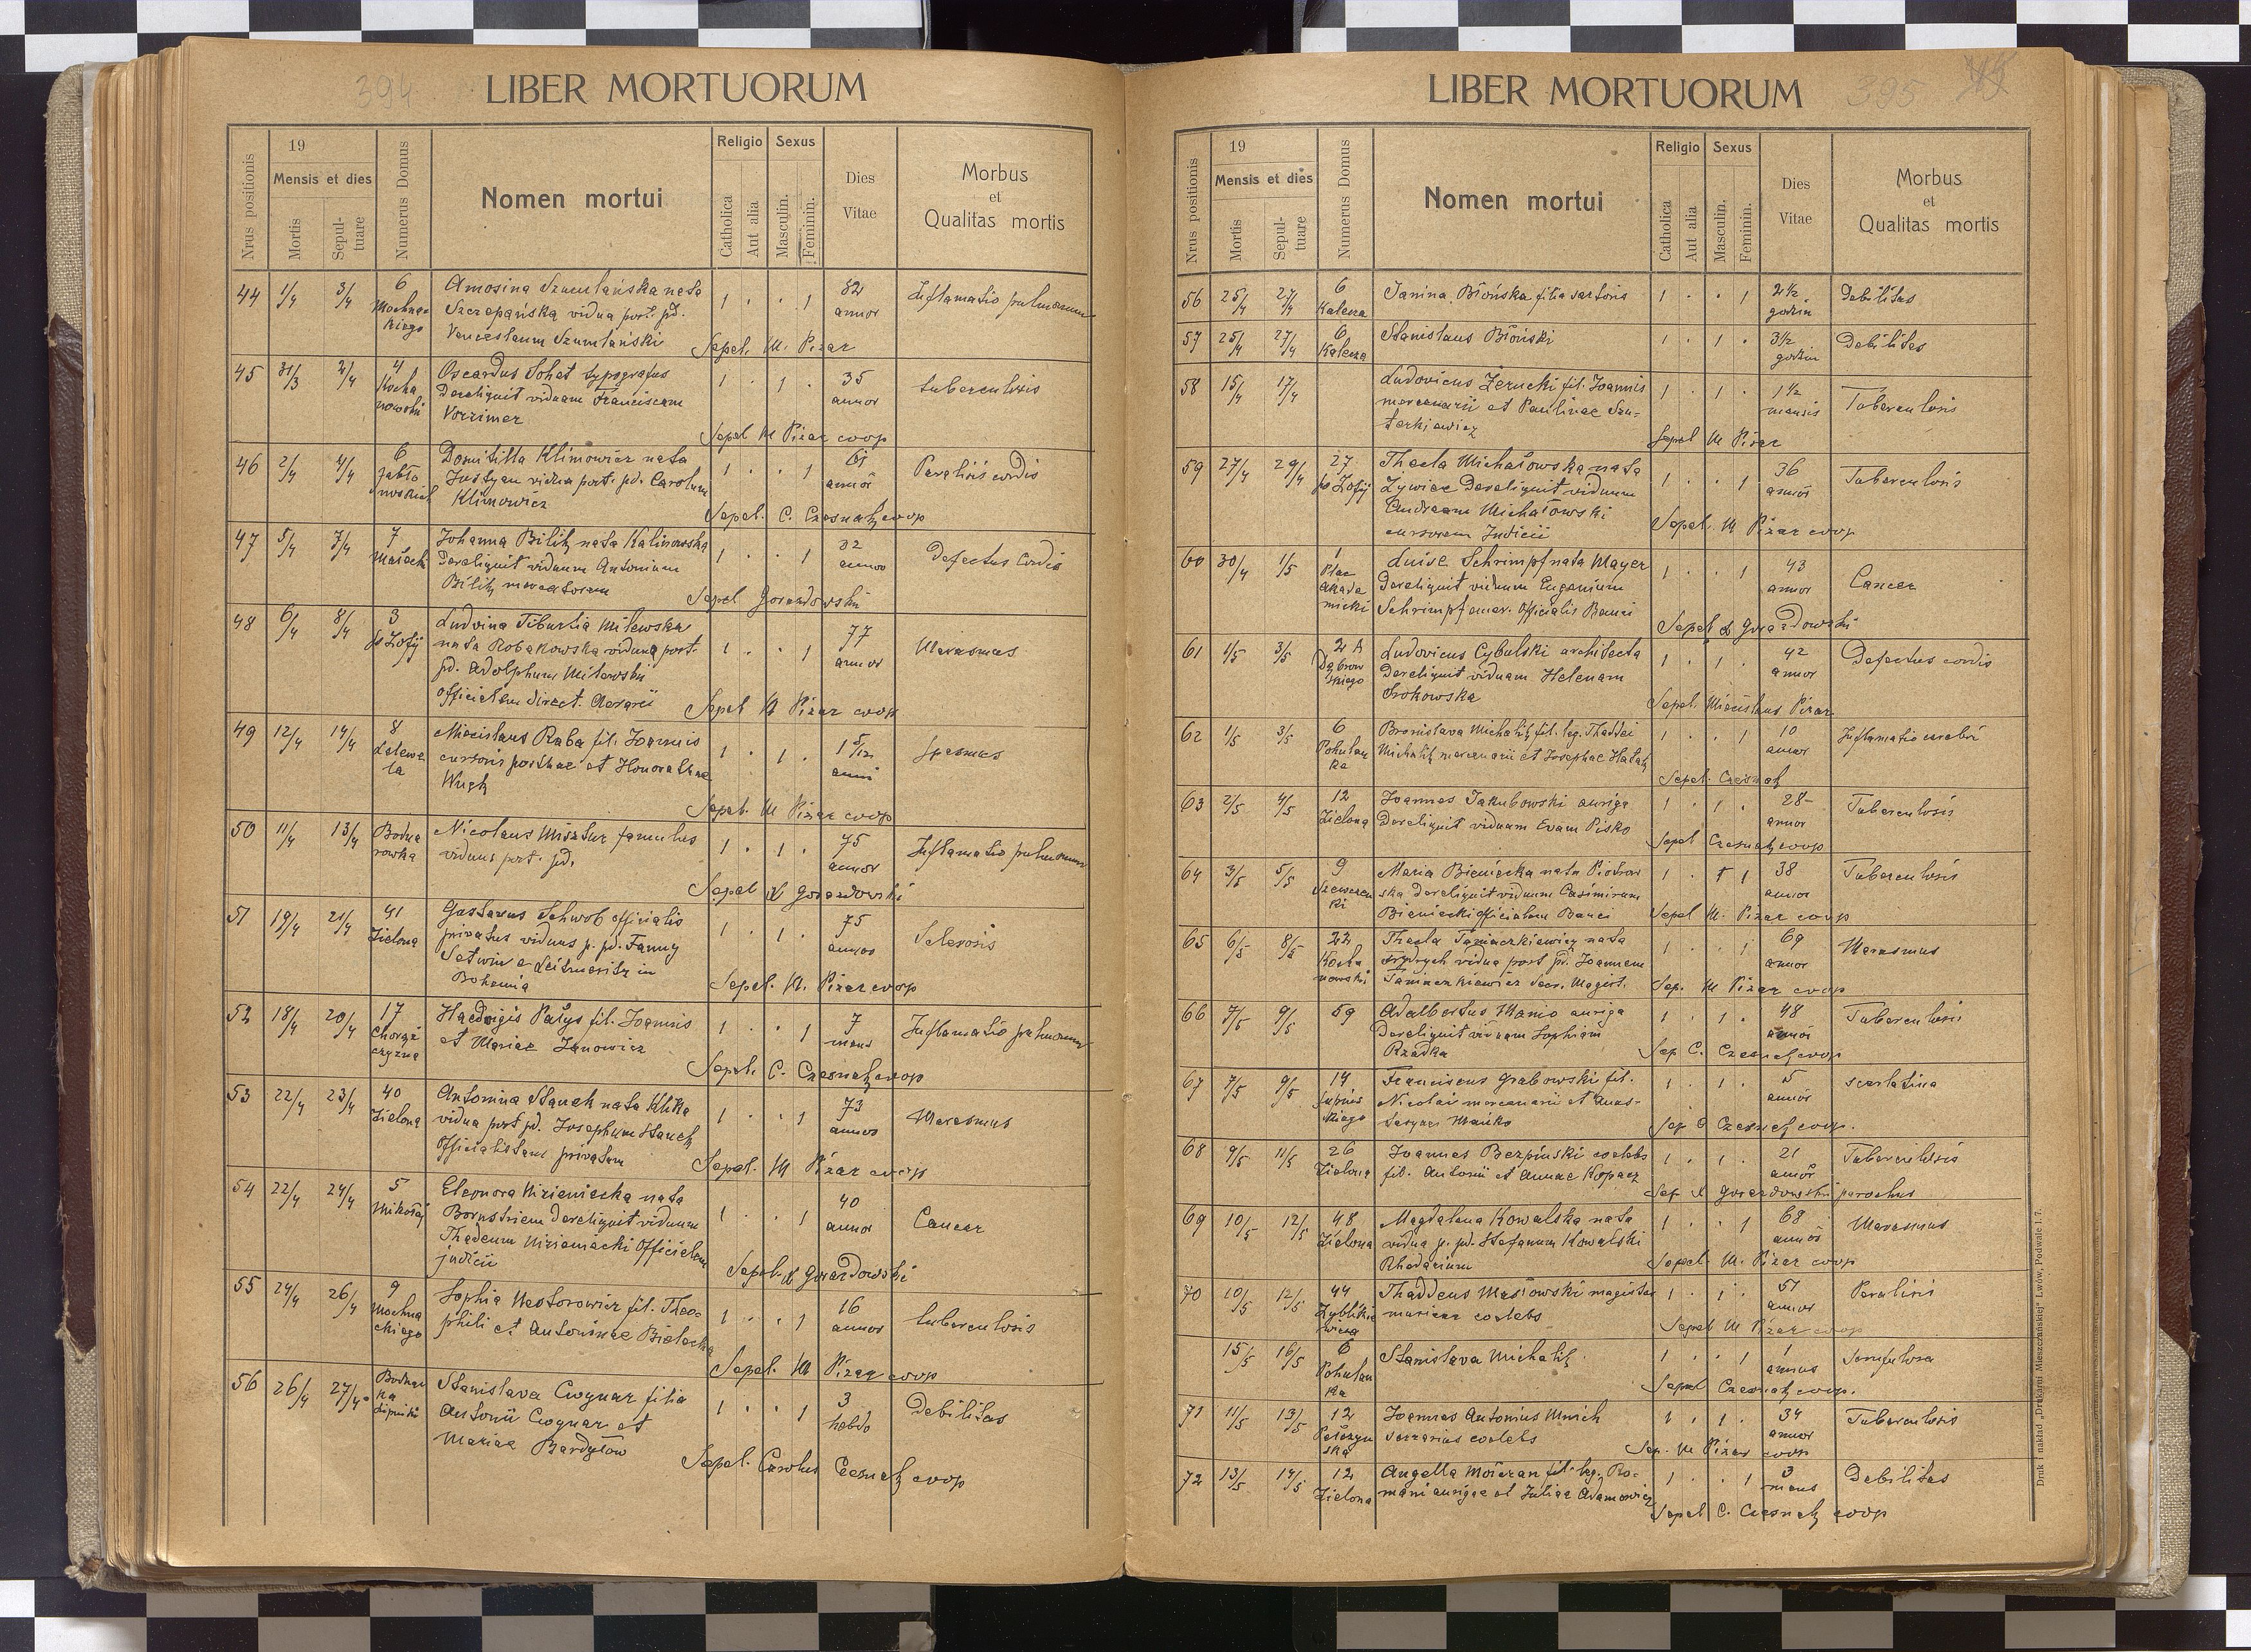 394
LIBER MORTUORUM
Nrus positionis
19
Mensis et dies
Mortis
Sepul-
tuare
Numerus Domus
Nomen mortui
Religio
Catholica
Aut alia
Sexus
Masculin.
Feminin.
Dies
Vitae
Morbus
et
Qualitas mortis
44 1/4 3/4 6 Szumlańska nata 1 . . 1 82 Inflamatio pulmonum
Mochnac- Szczepańska vidua post. pd. annor
kiego Venceslaum Szumlański
Sepel. M. Pizar
45 31/3 2/4 4 Oscardus Sohet typografus 1 . 1 . 35 tuberculosis
Kocha Dereliquit viduam Franciscam annor
nowski Vorzimer
Sepel M Pizar coop
46 2/4 4/4 6 Domitilla Klimowicz nata 1 . . 1 61 Paralisis cordis
Jabło Justyan vidua post. pd. Carolum annor
nowskich Klimowicz
Sepel. C. Czesnak coop
47 5/4 7/4 7 Johanna nata Kalinowska 1 . . 1 32 Defectus cordis
Małecki Dereliquit viduum Antonium annor
mercatorem
Sepel Gorazdowski
48 6/4 8/4 3 Ludvina Tiburtia Milewska 1 . . 1 77 Marasmus
św Zofij nata Robakowska vidua post. annor
pd. Adolphum Milewski
officialem direct. Aerarii
Sepel M Pizar coop
49 12/4 14/4 8 Miecislaus Raba fil. Joannis 1 . 1 . 1 5/12 Spasmus
Lelewe cursoris posthae et Honoratae anni
la
Sepel. M Pizar coop
50 11/4 13/4 Bodna Nicolaus Misztur famulus 1 . 1 . 75 Inflamatio pulmonum
rowka viduus post. pd. annor
Sepel X Gorazdowski
51 19/4 21/4 41 Gustavus Schwob officialis 1 . 1 . 75 Sclerosis
Zielona privatus viduus p. pd. Fanny annor
a Leitmeritz in
Bohemia
Sepel. M. Pizar coop
52 18/4 20/4 17 Haedvigis Pałys fil. Joannis 1 . . 1 7 Inflamatio pulmonum
Chorąż et Mariae Janowicz mens
czyzna
Sepel. C. Czesnak coop
53 22/4 23/4 40 Antonina Stanek nata Klika 1 . . 1 73 Marasmus
Zielona vidua post pd. Josephum Stanek annor
Officialistam privatum
Sepel. M Pizar coop
54 22/4 24/4 5 Eleonora Mizieniecka nata 1 . . 1 40 Cancer
Mikołaj Bornstriem dereliquit viduum annor
Thadeum Mizieniecki Officialem
judicii
Sepel. X Gorazdowski
55 24/4 26/4 9 Sophia Nestorowicz fil. Theo- 1 . . 1 16 tuberculosis
Mochna phili et Antoninae Bielecka annor
ckiego
Sepel. M Pizar coop
56 26/4 27/4 Stanislava Cwynar filia 1 . . 1 3 Debilitas
Antonii Cwynar et hebdo
Mariae Bardyłow
Sepel. Carolus Czesnak coop
395
LIBER MORTUORUM
Nrus positionis
19
Mensis et dies
Mortis
Sepul-
tuare
Numerus Domus
Nomen mortui
Religio
Catholica
Aut alia
Sexus
Masculin.
Feminin.
Dies
Vitae
Morbus
et
Qualitas mortis
56 25/4 27/4 6 Janina Błońska filia sartoris 1 . . 1 2 1/2 Debilitas
Kalecza godzin
57 25/4 27/4 6 Stanislaus Błoński 1 . 1 . 3 1/2 Debilitas
Kalecza godzin
58 15/4 17/4 Ludovicus Żerucki fil. Joannis 1 . 1 . 1 1/2 Tuberculosis
mercenarii et Paulinae Szu- mensis
terkiewicz
Sepel M Pizar
59 27/4 29/4 27 Thecla Michałowska nata 1 . . 1 36 Tuberculosis
św Zofij Żywiec Dereliquit viduum annor
Andream Michałowski
cursorem Judicii
Sepel. M Pizar coop
60 30/4 1/5 1 Luise Schrimpf nata Mayer 1 . . 1 43 Cancer
Plac Dereliquit viduum Eugenium annor
Akade Schrimpf emer. Officialis Banci
micki
Sepel X Gorazdowski
61 1/5 3/5 2 A Ludovicus Cybulski architecta 1 . 1 . 42 Defectus cordis
Dąbrow Dereliquit viduam Helenam annor
skiego Srokowska
Sepel. Miecislaus Pizar
62 1/5 3/5 6 Bronislava fil. leg. Thaddei 1 . . 1 10 Inflamatio cerebri
Pohulan mercenarii et Josephae annor
ka
Sepel. Czesnak
63 2/5 4/5 12 Joannes Jakubowski auriga 1 . 1 . 28 Tuberculosis
Zielona Dereliquit viduam Evam Pisko annor
Sepel Czesnak coop
64 3/5 5/5 9 Maria Bieniecka nata Piotrow 1 . 1 38 Tuberculosis
ska dereliquit viduum Casimirum annor
Bieniecki officialem Banci
Sepel M. Pizar coop
65 6/5 8/5 22 Thecla Taniaczkiewicz nata 1 . . 1 69 Marasmus
Kocha vidua post pd. Joannem annor
nowski Taniaczkiewicz Secr. Magist.
Sep. M Pizar coop
66 7/5 9/5 59 Adalbertus Manio auriga 1 . 1 . 48 Tuberculosis
Dereliquit viduam Sophiam annor
Rzadka
Sep C. Czesnak coop
67 7/5 9/5 14 Franciscus Grabowski fil. 1 . 1 . 5 scarlatina
Nicolai mercenarii et Anas- annor
tasynae Mańko
Sep C Czesnak coop.
68 9/5 11/5 26 Joannes Bezpiński coelebs 1 . 1 . 21 Tuberculosis
Zielona fil. Antonii et Annae Kopacz annor
Sep. X Gorazdowski parochus
69 10/5 12/5 48 Magdalena Kowalska nata 1 . . 1 68 Marasmus
Zielona vidua p. pd. Stefanum Kowalski annor
Rhedarium
Sepel. M. Pizar coop
70 10/5 12/5 44 Thaddeus Masłowski magister 1 . 1 . 51 Paralisis
Zyblikie musicae coelebs annor
wicza
Sepel M Pizar coop
15/5 16/5 6 Stanislava 1 . . 1 1 Scrofulosa
Pohulan annus
ka
Sepel Czesnak coop.
71 11/5 13/5 12 Joannes Antonius Mnich 1 . 1 . 34 Tuberculosis
Pełczyn serrarius coelebs annor
ska
Sep. M Pizar coop
72 13/5 14/5 12 Angella fil. leg. Ro- 1 . . 1 3 Debilitas
Zielona mani aurigae et Juliae Adamowicz mens
Sepel C. Czesnak coop
Druk i nakład „Drukarni Mieszczańskiej" Lwów, Podwale l. 7.